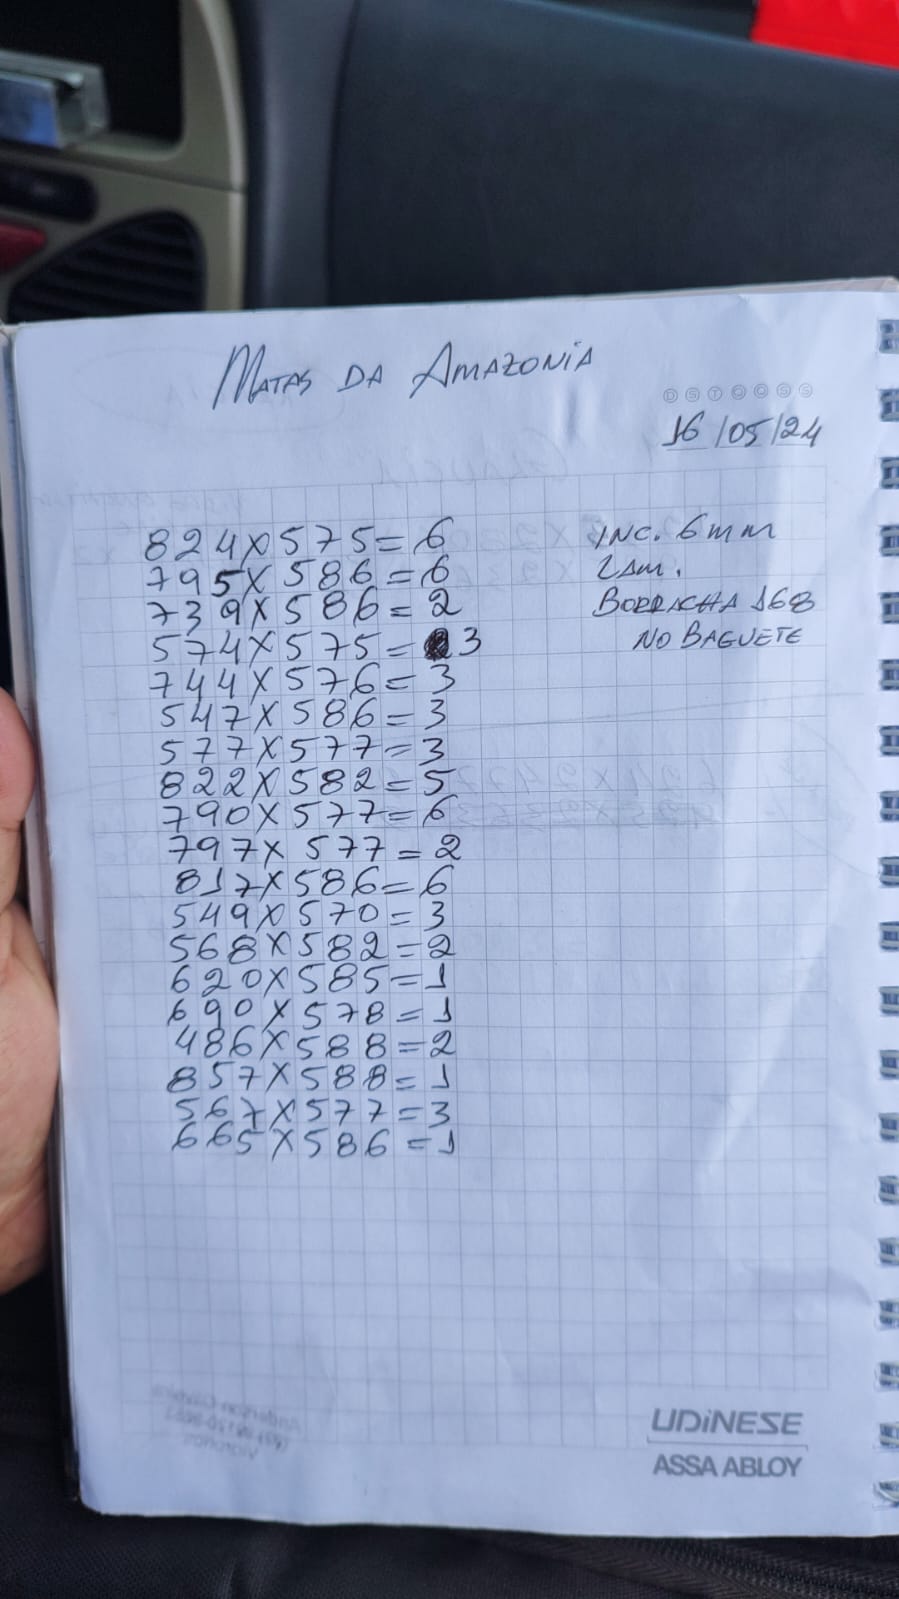 MATAS DA AMAZONIA
D S T Q Q S S
16/05/24
824X575=6
INC. 6mm
795X586=6
LAM.
739X586=2
BORRACHA 168
574X575=3
NO BAGUETE
744X576=3
547X586=3
577X577=3
822X582=5
790X577=6
797X577=2
817X586=6
549X570=3
568X582=2
620X585=1
690X578=1
486X588=2
857X588=1
567X577=3
665X586=1
UDiNESE
ASSA ABLOY